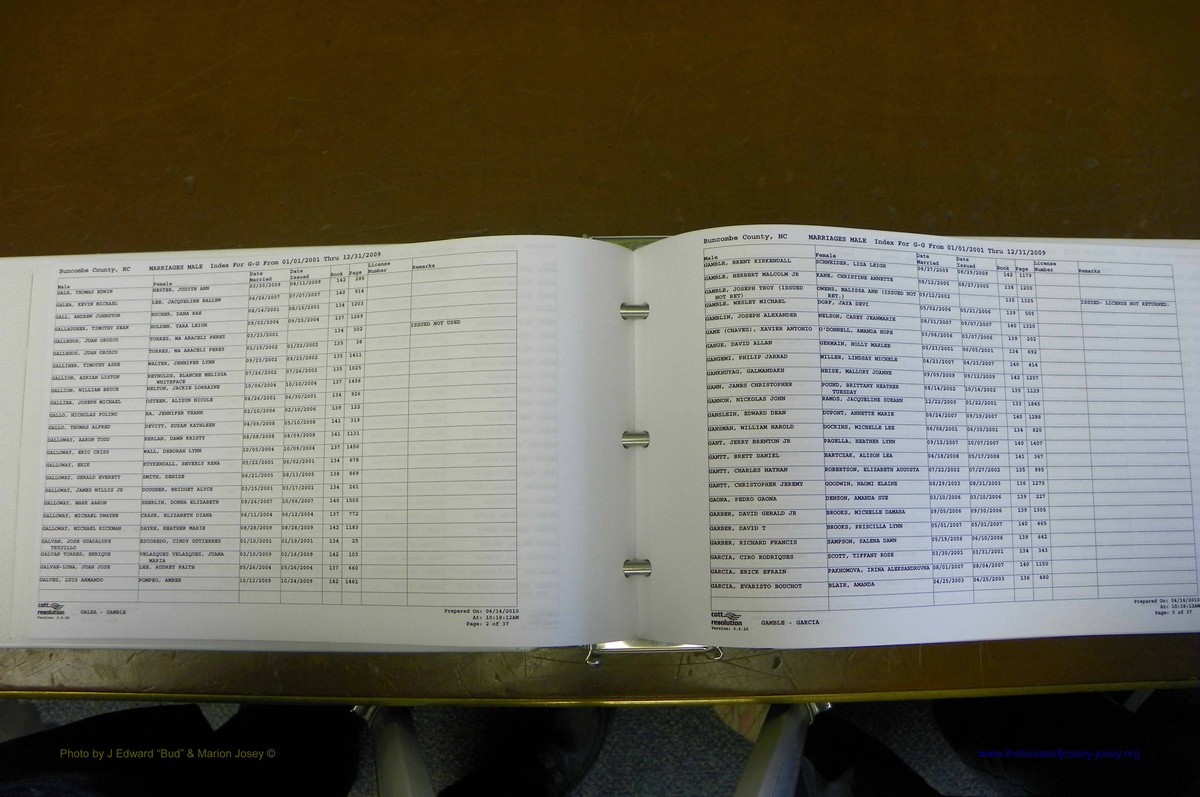 Buncombe County, NC MARRIAGES MALE Index For G-G From 01/01/2001 Thru 12/31/2009
Male Female Date Married Date Issued Book Page License Number Remarks
GALE, THOMAS EDWIN WESTER, JUDITH ANN 03/30/2009 04/11/2009 142 285
GALEA, KEVIN MICHAEL LEE, JACQUELINE 06/26/2007 07/07/2007 140 914
GALL, ANDREW JOHNSTON BUCHER, DANA RAE 08/14/2001 08/15/2001 134 1203
GALLAUGHER, TIMOTHY SEAN HOLDEN, TARA LEIGH 09/02/2004 09/25/2004 137 1269
GALLEGOS, JUAN OROZCO TORRES, MA ARACELI PEREZ 03/23/2001 134 302 ISSUED NOT USED
GALLEGOS, JUAN OROZCO TORRES, MA ARACELI PEREZ 01/15/2002 01/22/2002 135 38
GALLIHER, TIMOTHY WALTER, JENNIFER LYNN 09/23/2002 09/23/2002 135 1411
GALLION, ADRIAN LISTON REYNOLDS, BLANCHE MELISSA WHITEFACE 07/26/2002 07/26/2002 135 1025
GALLION, WILLIAM BRUCE HELTON, JACKIE LORRAINE 10/06/2004 10/10/2004 137 1456
GALLIXA, JOSEPH MICHAEL OSTEEN, ALISON NICOLE 06/26/2001 06/30/2001 134 926
GALLO, NICHOLAS FOLINO HA, JENNIFER THANH 02/10/2006 02/10/2006 139 122
GALLO, THOMAS ALFRED DEVITT, SUSAN KATHLEEN 04/08/2008 05/10/2008 141 319
GALLOWAY, AARON TODD REHLAN, DAWN KRISTY 08/08/2008 08/09/2008 141 1131
GALLOWAY, ERIC CRISS WALL, DEBORAH LYNN 10/05/2004 10/09/2004 137 1450
GALLOWAY, ERIK KUYKENDALL, BEVERLY RENA 05/23/2001 06/02/2001 134 678
GALLOWAY, GERALD EVERETT SMITH, DENISE 06/21/2005 08/13/2005 138 869
GALLOWAY, JAMES WILLIS JR DOUGHER, BRIDGET ALYCE 03/15/2001 03/17/2001 134 261
GALLOWAY, MARK AARON SHERLIN, DONNA ELIZABETH 09/26/2007 10/06/2007 140 1505
GALLOWAY, MICHAEL DWAYNE CRASK, ELIZABETH DIANA 06/11/2004 06/12/2004 137 772
GALLOWAY, MICHAEL RICKMAN SAYRE, HEATHER MARIE 08/28/2009 08/28/2009 142 1183
GALVAN, JOSE GUADALUPE TRUJILLO ESCOBEDO, CINDY GUTIERREZ 01/10/2001 01/19/2001 134 25
GALVAN TORRES, ENRIQUE VELASQUES VELASQUES, JUANA MARIA 02/10/2009 02/14/2009 142 103
GALVAN-LUNA, JUAN JOSE LEE, AUDREY FAITH 05/24/2004 05/26/2004 137 660
GALVEZ, LUIS ARMANDO POMPEO, AMBER 10/12/2009 10/24/2009 142 1461
cott resolution
Version: 3.4.26
GALEA - GAMBLE
Prepared On: 04/14/2010
At: 10:18:12AM
Page: 2 of 37
Buncombe County, NC MARRIAGES MALE Index For G-G From 01/01/2001 Thru 12/31/2009
Male Female Date Married Date Issued Book Page License Number Remarks
GAMBLE, BRENT KIRKENDALL SCHNEIDER, LISA LEIGH 08/27/2009 08/29/2009 142 1179
GAMBLE, HERBERT MALCOLM JR KANE, CHRISTINE ANNETTE 08/12/2005 08/27/2005 138 1200
GAMBLE, JOSEPH TROY (ISSUED NOT RET) OWENS, MALISSA ANN (ISSUED NOT RET.) 09/12/2002 135 1325 ISSUED- LICENSE NOT RETURNED.
GAMBLE, WESLEY MICHAEL DORF, JAYA DEVI 05/02/2006 05/21/2006 139 505
GAMBLIN, JOSEPH ALEXANDER NELSON, CASEY JEANMARIE 08/01/2007 09/07/2007 140 1320
GAME (CHAVEZ), XAVIER ANTONIO O'DONNELL, AMANDA HOPE 03/06/2006 03/07/2006 139 202
GANGE, DAVID ALLAN GERMAIN, HOLLY MARLEE 05/23/2001 06/05/2001 134 692
GANGEWI, PHILIP JARRAD MILLER, LINDSAY MICHELE 04/23/2007 04/27/2007 140 414
GANKHUYAG, GALMANDAKH HEISE, MALLORY JOANNE 09/09/2009 09/12/2009 142 1257
GANN, JAMES CHRISTOPHER POUND, BRITTANY HEATHER TUESDAY 08/14/2002 10/14/2002 135 1129
GANNON, NICKOLAS JOHN RAMOS, JACQUELINE SUEANN 12/22/2000 01/22/2001 133 1845
GANSLEIN, EDWARD DEAN DUPONT, ANNETTE MARIE 08/24/2007 09/19/2007 140 1288
GANSMAN, WILLIAM HAROLD DOCKINS, MICHELLE LEE 06/08/2001 06/30/2001 134 820
GANT, JERRY BRENTON JR PAGELLA, HEATHER LYNN 09/12/2007 10/07/2007 140 1407
GANTT, BRETT DANIEL BARTCZAK, ALISON LEA 04/18/2008 05/17/2008 141 367
GANTT, CHARLES NATHAN ROBERTSON, ELIZABETH AUGUSTA 07/22/2002 07/27/2002 135 995
GANTT, CHRISTOPHER JEREMY GOODWIN, NAOMI ELAINE 08/29/2003 08/31/2003 136 1270
GAONA, PEDRO GAONA DENSON, AMANDA SUE 03/10/2006 03/10/2006 139 227
GARBER, DAVID GERALD JR BROOKS, MICHELLE DAMARA 09/05/2006 09/30/2006 139 1305
GARBER, DAVID T BROOKS, PRISCILLA LYNN 05/01/2007 05/01/2007 140 465
GARBER, RICHARD FRANCIS SAMPSON, SALENA DAWN 05/19/2006 06/10/2006 139 642
GARCIA, CIRO RODRIQUES SCOTT, TIFFANY ROSE 03/30/2001 03/31/2001 134 343
GARCIA, ERICK EFRAIN PAKHOMOVA, IRINA ALEKSANDROVNA 08/01/2007 08/04/2007 140 1150
GARCIA, EVARISTO BOUCHOT BLAIR, AMANDA 04/25/2003 04/25/2003 136 480
cott resolution
Version: 3.4.26
GAMBLE - GARCIA
Prepared On: 04/14/2010
At: 10:18:12AM
Page: 3 of 37
Photo by J Edward "Bud" & Marion Josey ©
www.thehouseofjossey-josey.org